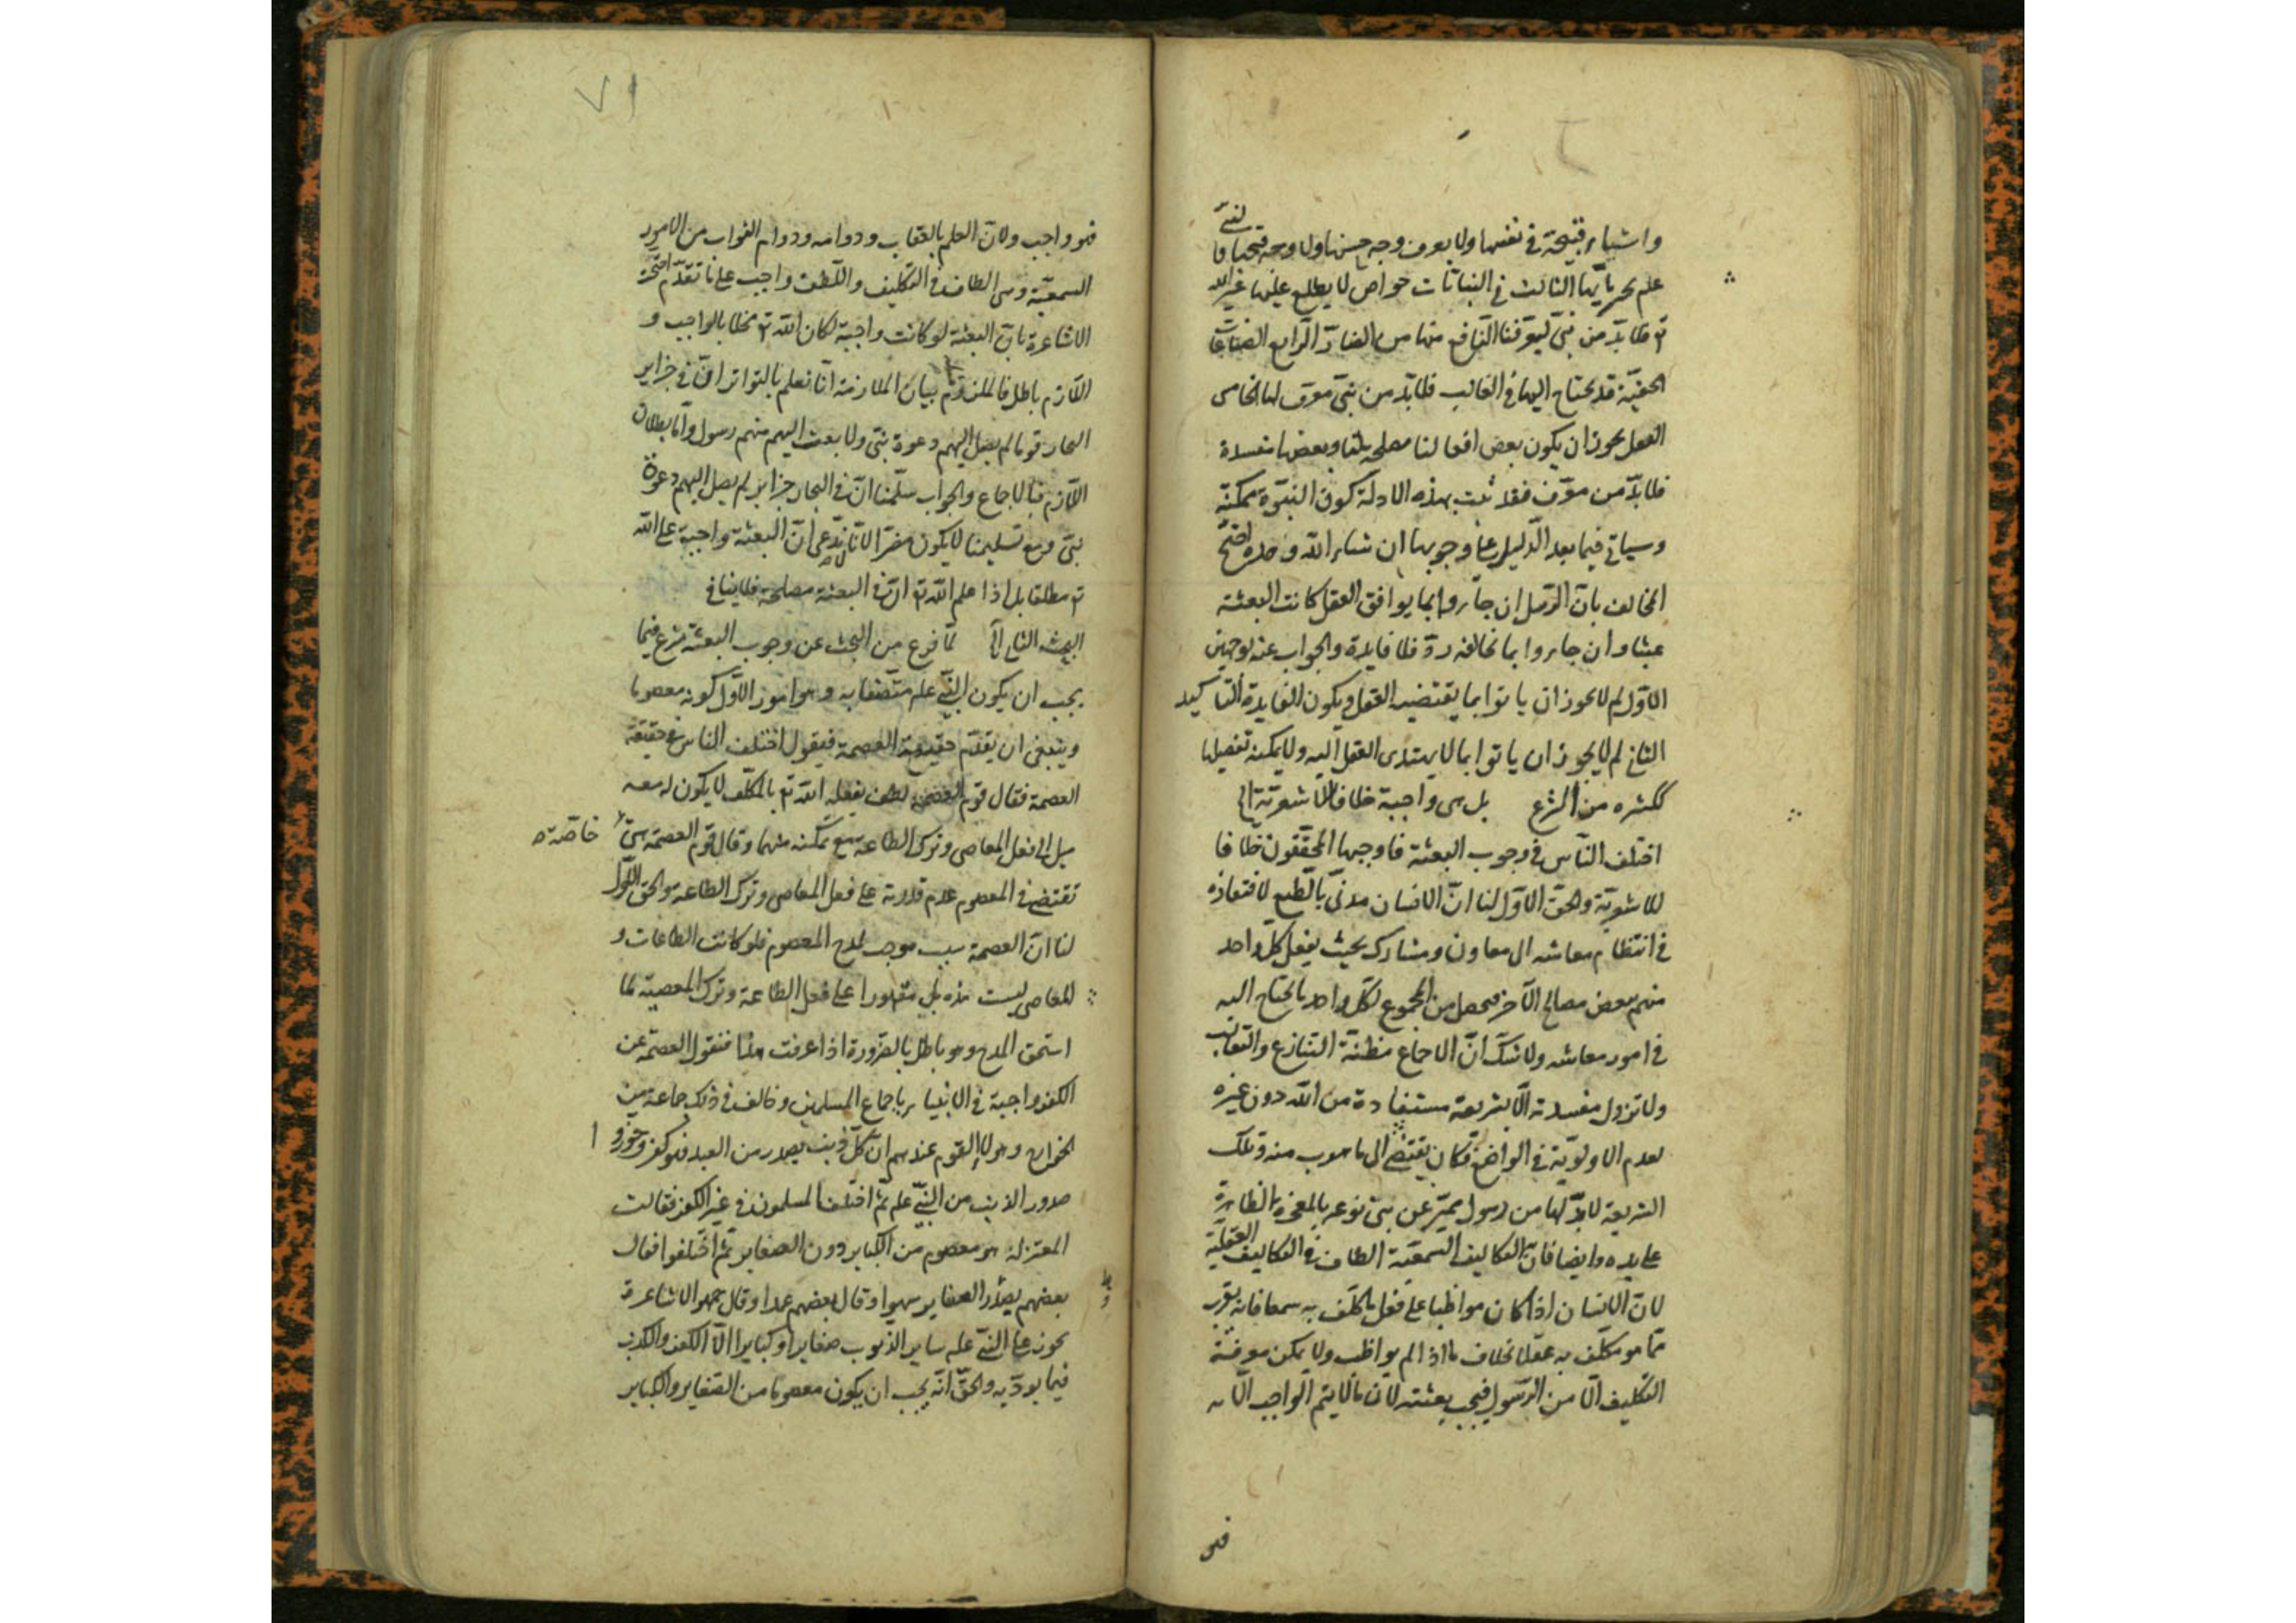 واشياء قبيحة في نفسها ولا يعرف وجه حسنها ولا وجه قبحها فالنبي
علم يخبر بأيها الثالث في النباتات خواص لا يطلع عليها غير الله
تع فلابدّ من نبيّ ليعرّفنا النّافع منها من الضارّ الرابع الصناعات
الخفيّة قد يحتاج اليها في الغالب فلابدّ من نبيّ معرف لها الخامس
العقل يجوز ان يكون بعض افعالنا مصلحة لنا وبعضها مفسدة
فلابدّ من معرّف فقد ثبت بهذه الادلة كون النبوّة ممكنة
وسياتي فيما بعد الدّليل على وجوبها ان شاء الله وحده احتجّ
المخالف بانّ الرّسل ان جاءوا بما يوافق العقل كانت البعثة
عبثا وان جاءوا بما يخالفه ردّ فلا فايدة والجواب عنه لوجهين
الاوّل لم لا يجوز ان ياتوا بما يقتضيه العقل ويكون الفايدة التاكيد
الثاني لم لا يجوز ان ياتوا بما لا يهتدي العقل اليه ولا يمكنه تفصيلها
ككثره من الشرع بل هي واجبة خلافا للاشعريّة الى
اختلف النّاس في وجوب البعثة فاوجبها المحقّقون خلافا
للاشعريّة والحقّ الاوّل لنا انّ الانسان مدنيّ بالطّبع لافتقاره
في انتظام معاشه الى معاون ومشارك بحيث يفعل كلّ واحد
منهم بعض مصالح الآخر فيحصل من المجموع لكلّ واحد ما يحتاج اليه
في امور معاشه ولا شكّ انّ الاجماع مظنّة التنازع والتغالب
ولا تزول مفسدته الّا بشريعة مستفادة من الله دون غيره
لعدم الاولويّة في الواضع فكان يقتضي الى ما هرب منه وتلك
الشريعة لابدّ لها من رسول يميّز عن بني نوعه بالمعجزة الظاهرة
على يده وايضا فانّ التكاليف السمعيّة الطاف في التكاليف العقليّة
لانّ الانسان اذا كان مواظبا على فعل ما كلّف به سمعا فانه يقرب
ممّا هو مكلّف به عقلا بخلاف ما اذا لم يواظب ولا يمكن معرفة
التكليف الّا من الرّسول فيجب بعثته لانّ ما لا يتمّ الواجب الّا به
فهو
٧١
فهو واجب ولانّ العلم بالعقاب ودوامه ودوام الثواب من الامور
السمعيّة وهي الطاف في التكليف واللّطف واجب على ما تقدّم احتجّت
الاشاعرة بانّ البعثة لو كانت واجبة لكان الله تع مخلا بالواجب و
اللّازم باطل فالملزوم بيان الملازمة انّا نعلم بالتواتر انّ في جزاير
البحار قوما لم يصل اليهم دعوة نبيّ ولا بعث اليهم منهم رسول وامّا بطلان
اللّازم فبالاجماع والجواب سلّمنا انّ في البحار جزاير لم يصل اليهم دعوة
نبيّ ومع تسليمنا لا يكون مضرّا لانّا لا ندّعي انّ البعثة واجبة على الله
تع مطلقا بل اذا علم الله تع انّ في البعثة مصلحة فلا ينافي
البحث الثاني لمّا فرغ من البحث عن وجوب البعثة شرع فيما
يجب ان يكون النبيّ علم متّصفا به وهو امور الاوّل كونه معصوما
وينبغي ان يقدّم حقيقة العصمة فيقول اختلف الناس في حقيقة
العصمة فقال قوم العصمة لطف يفعله الله تع بالمكلّف لا يكون له معه
ميل الى فعل المعاصي وترك الطاعة مع تمكّنه منهما وقال قوم العصمة هي
خاصّة
تقتضي في المعصوم عدم قدرته على فعل المعاصي وترك الطاعة والحق الاوّل
لنا انّ العصمة سبب موجب لمدح المعصوم فلو كانت الطاعات و
المعاصي ليست مقدورا على فعل الطاعة وترك المعصية لما
استحق المدح وهو باطل بالضرورة اذا عرفت هذا فنقول العصمة عن
الكفر واجبة في الانبياء باجماع المسلمين وخالف في ذلك جماعة من
الخوارج وهؤلاء القوم عندهم انّ كلّ ذنب يصدر من العبد فهو كفر وجوّزوا
صدور الذنب من النبيّ علم ثمّ اختلف المسلمون في غير الكفر فقالت
المعتزلة هو معصوم من الكباير دون الصغاير ثمّ اختلفوا فقال
بعضهم يصدر الصغاير سهوا وقال بعضهم عمدا وقال جمهور الاشاعرة
يجوز على النبيّ علم ساير الذنوب صغايرا وكبايرا الّا الكفر والكذب
فيما يودّيه والحقّ انّه يجب ان يكون معصوما من الصّغاير والكباير